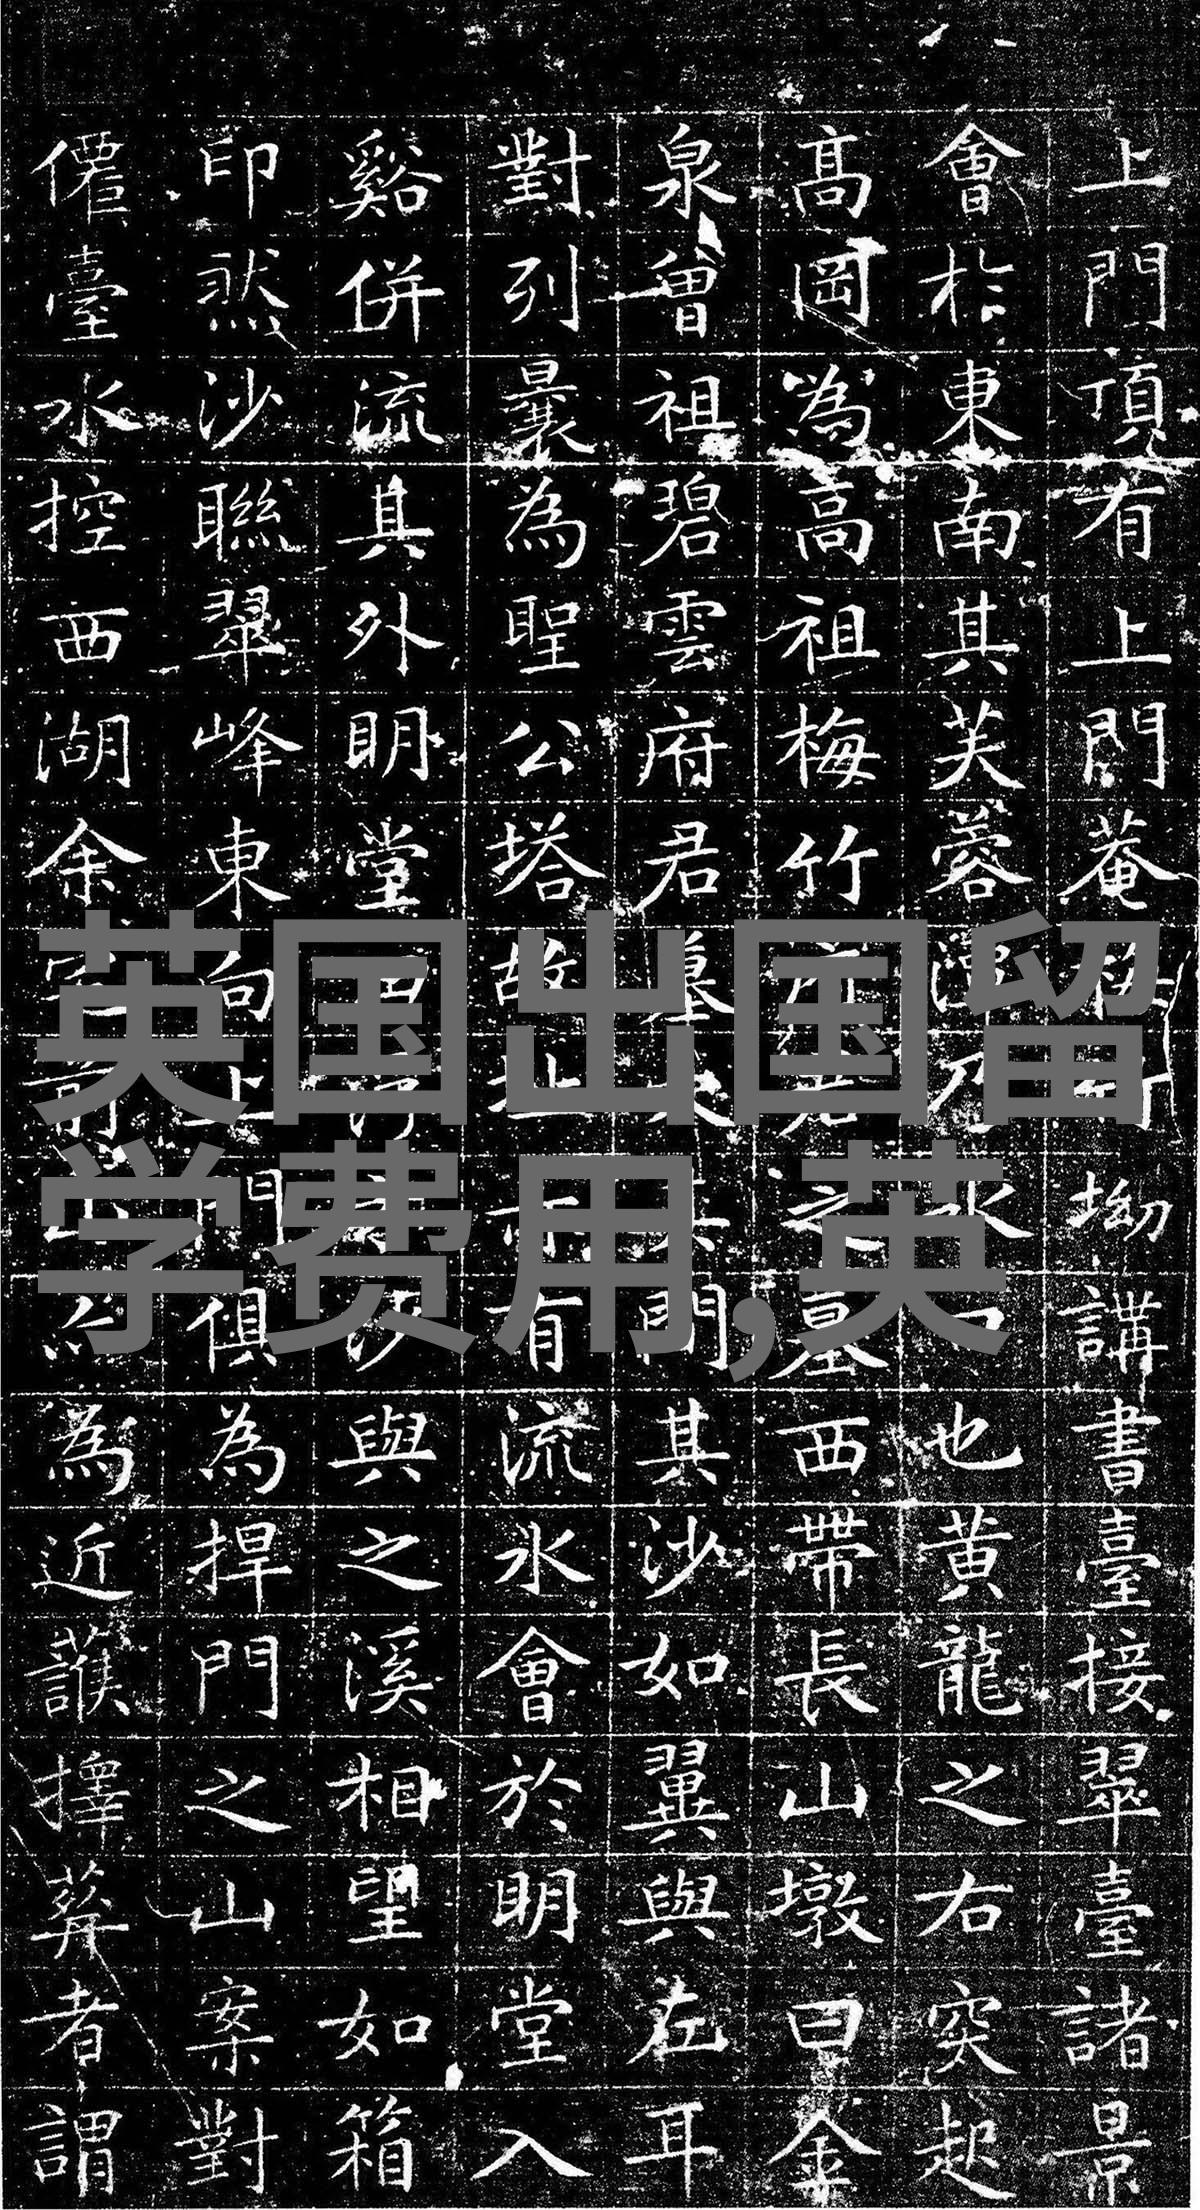 上門頂有上門菴坳講書臺接翠臺諸景
會於東南其芙蓉潭乃水口也黃龍之右突起
高岡為高祖梅竹府君之墓西帶長山墩曰金
泉曾祖碧雲府君墓門其沙如翼與左耳
對列曩為聖公塔故址有流水會於明堂入
谿併流其外明堂沙與之溪相望如箱
印然沙聯翠峰東向上門俱為捍門之山案對
僊臺水控西湖余前為近擇葬者謂
英国出国留
学费用,英